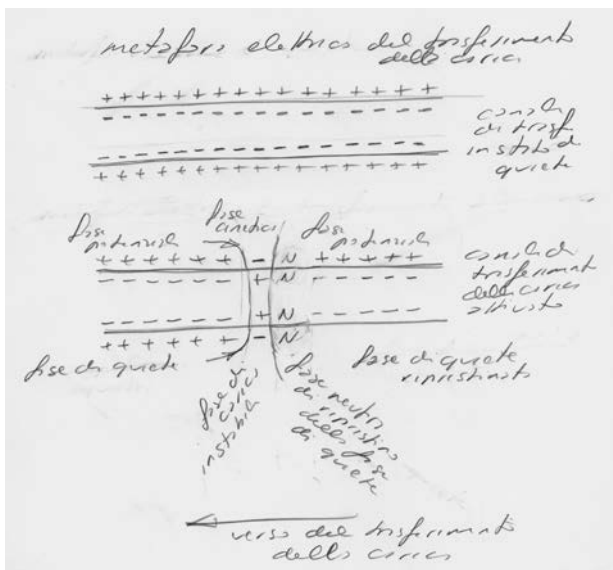 metafora elettrica del trasferimento
della carica
+ + + + + + + + + + + + + +
- - - - - - - - - - - - - -
canale
di trasf
in stato di
quiete
- - - - - - - - - - - - - -
+ + + + + + + + + + + + + +
fase
potenziale
fase
cinetica
fase
potenziale
+ + + + + + - N + + + + +
- - - - - - + N - - - - -
canale di
trasferimento
della carica
attivato
- - - - - + N - - - - -
+ + + + + + - N
fase di quiete
fase di quiete
ripristinata
fase di
carica
instabile
fase neutra
di ripristino
della fase
di quiete
verso del trasferimento
della carica